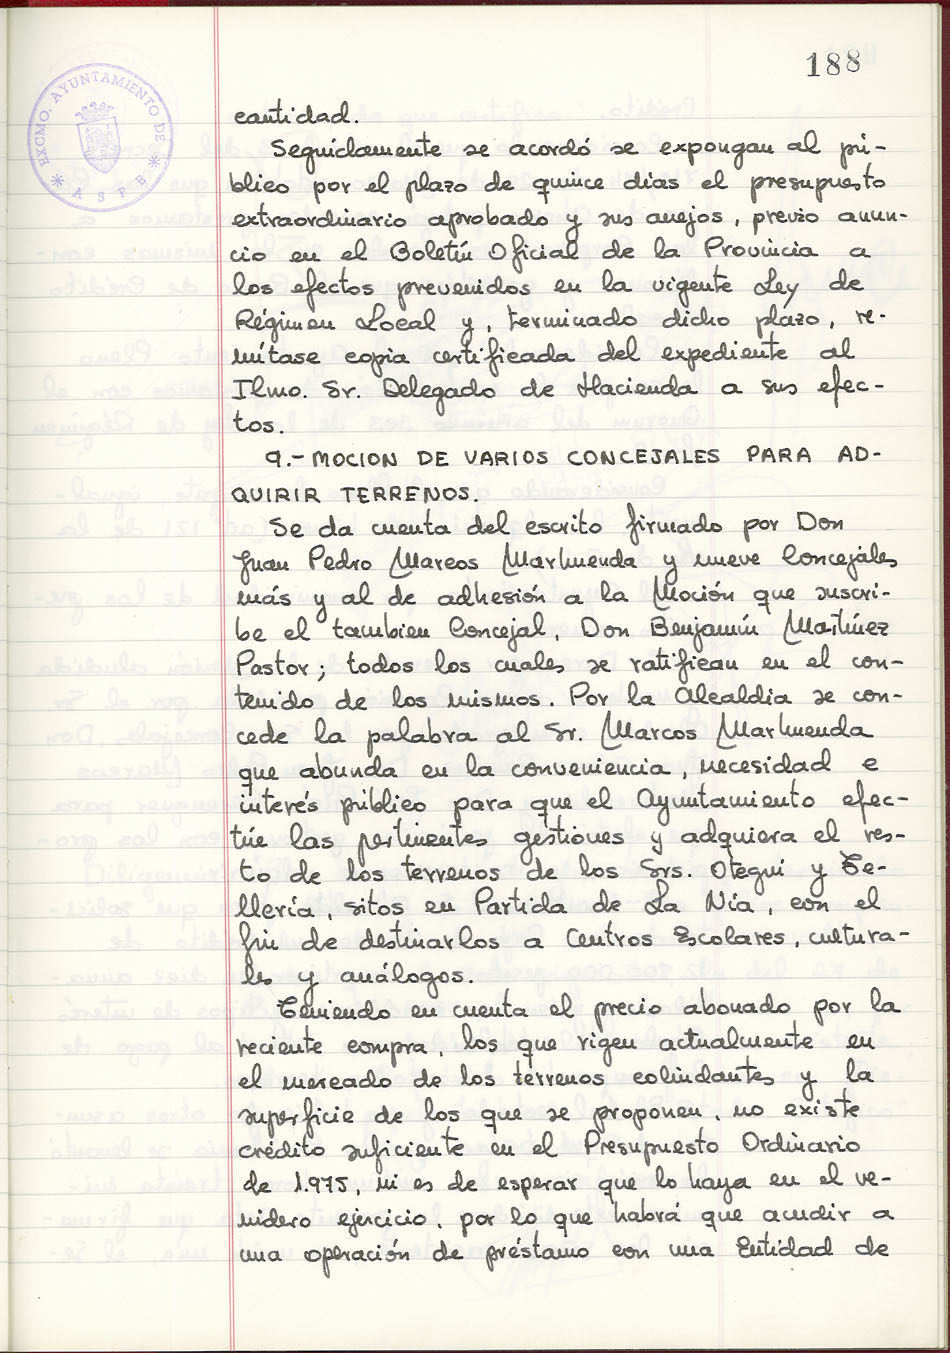 188
EXCMO. AYUNTAMIENTO DE
* ASPE *
cantidad.
Seguidamente se acordó se expongan al pú-
blico por el plazo de quince días el presupuesto
extraordinario aprobado y sus anejos, previo anun-
cio en el Boletín Oficial de la Provincia a
los efectos prevenidos en la vigente Ley de
Régimen Local y, terminado dicho plazo, re-
mítase copia certificada del expediente al
Ilmo. Sr. Delegado de Hacienda a sus efec-
tos.
9.- MOCION DE VARIOS CONCEJALES PARA AD-
QUIRIR TERRENOS.
Se da cuenta del escrito firmado por Don
Juan Pedro Marcos Marhuenda y nueve Concejales
más y al de adhesión a la Moción que suscri-
be el tambien Concejal, Don Benjamín Martínez
Pastor; todos los cuales se ratifican en el con-
tenido de los mismos. Por la Alcaldía se con-
cede la palabra al Sr. Marcos Marhuenda
que abunda en la conveniencia, necesidad e
interés público para que el Ayuntamiento efec-
túe las pertinentes gestiones y adquiera el res-
to de los terrenos de los Srs. Otegui y Te-
llería, sitos en Partida de La Nía, con el
fin de destinarlos a Centros Escolares, cultura-
les y análogos.
Teniendo en cuenta el precio abonado por la
reciente compra, los que rigen actualmente en
el mercado de los terrenos colindantes y la
superficie de los que se proponen, no existe
crédito suficiente en el Presupuesto Ordinario
de 1.975, ni es de esperar que lo haya en el ve-
nidero ejercicio, por lo que habrá que acudir a
una operación de préstamo con una Entidad de